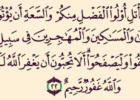 يَأْتَلِ أُو۟لُوا۟ ٱلْفَضْلِ مِنكُمْ وَٱلسَّعَةِ أَن يُؤْتُوٓا۟
وَٱلْمَسَٰكِينَ وَٱلْمُهَٰجِرِينَ فِى سَبِيلِ
وَلْيَصْفَحُوٓا۟ أَلَا تُحِبُّونَ أَن يَغْفِرَ ٱللَّهُ
وَٱللَّهُ غَفُورٌ رَّحِيمٌ ٢٢